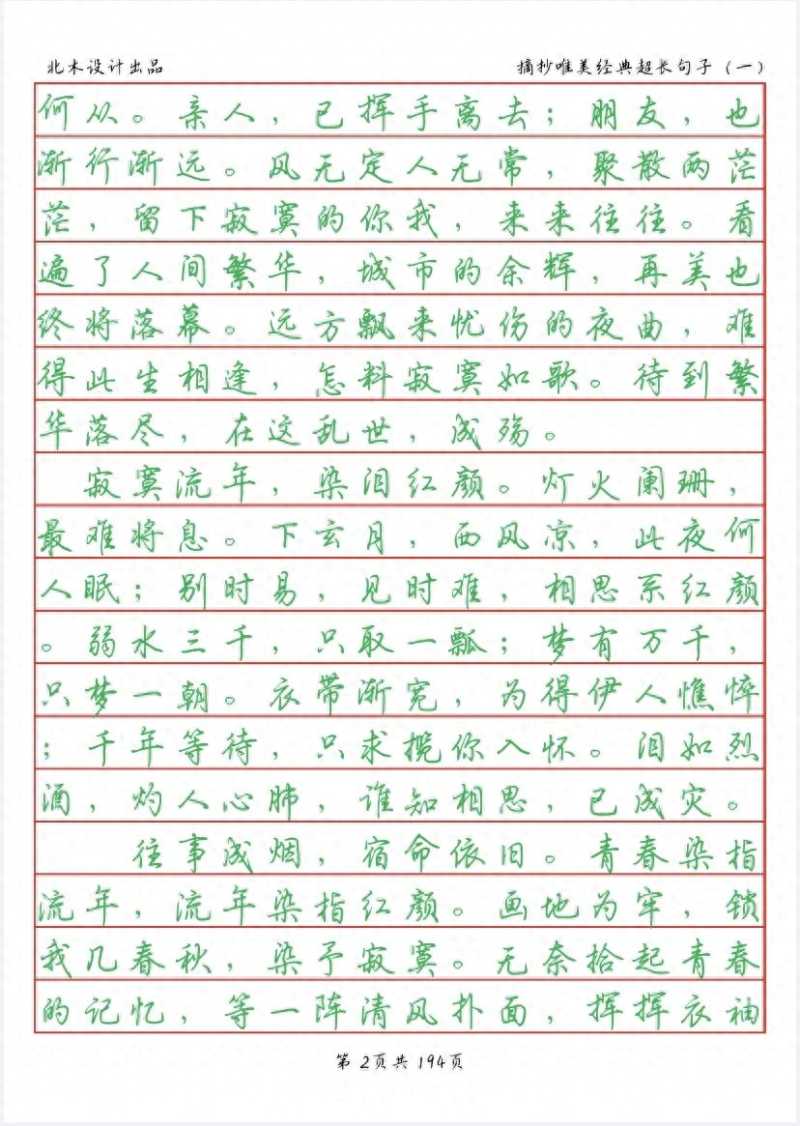 北木设计出品
摘抄唯美经典超长句子（一）
何从。亲人，已挥手离去；朋友，也
渐行渐远。风无定人无常，聚散两茫
茫，留下寂寞的你我，来来往往。看
遍了人间繁华，城市的余辉，再美也
终将落幕。远方飘来忧伤的夜曲，难
得此生相逢，怎料寂寞如歌。待到繁
华落尽，在这乱世，成殇。
寂寞流年，染泪红颜。灯火阑珊，
最难将息。下玄月，西风凉，此夜何
人眠；别时易，见时难，相思系红颜
。弱水三千，只取一瓢；梦有万千，
只梦一朝。衣带渐宽，为得伊人憔悴
；千年等待，只求揽你入怀。泪如烈
酒，灼人心肺，谁知相思，已成灾。
往事成烟，宿命依旧。青春染指
流年，流年染指红颜。画地为牢，锁
我几春秋，染予寂寞。无奈拾起青春
的记忆，等一阵清风扑面，挥挥衣袖
第 2页共 194页